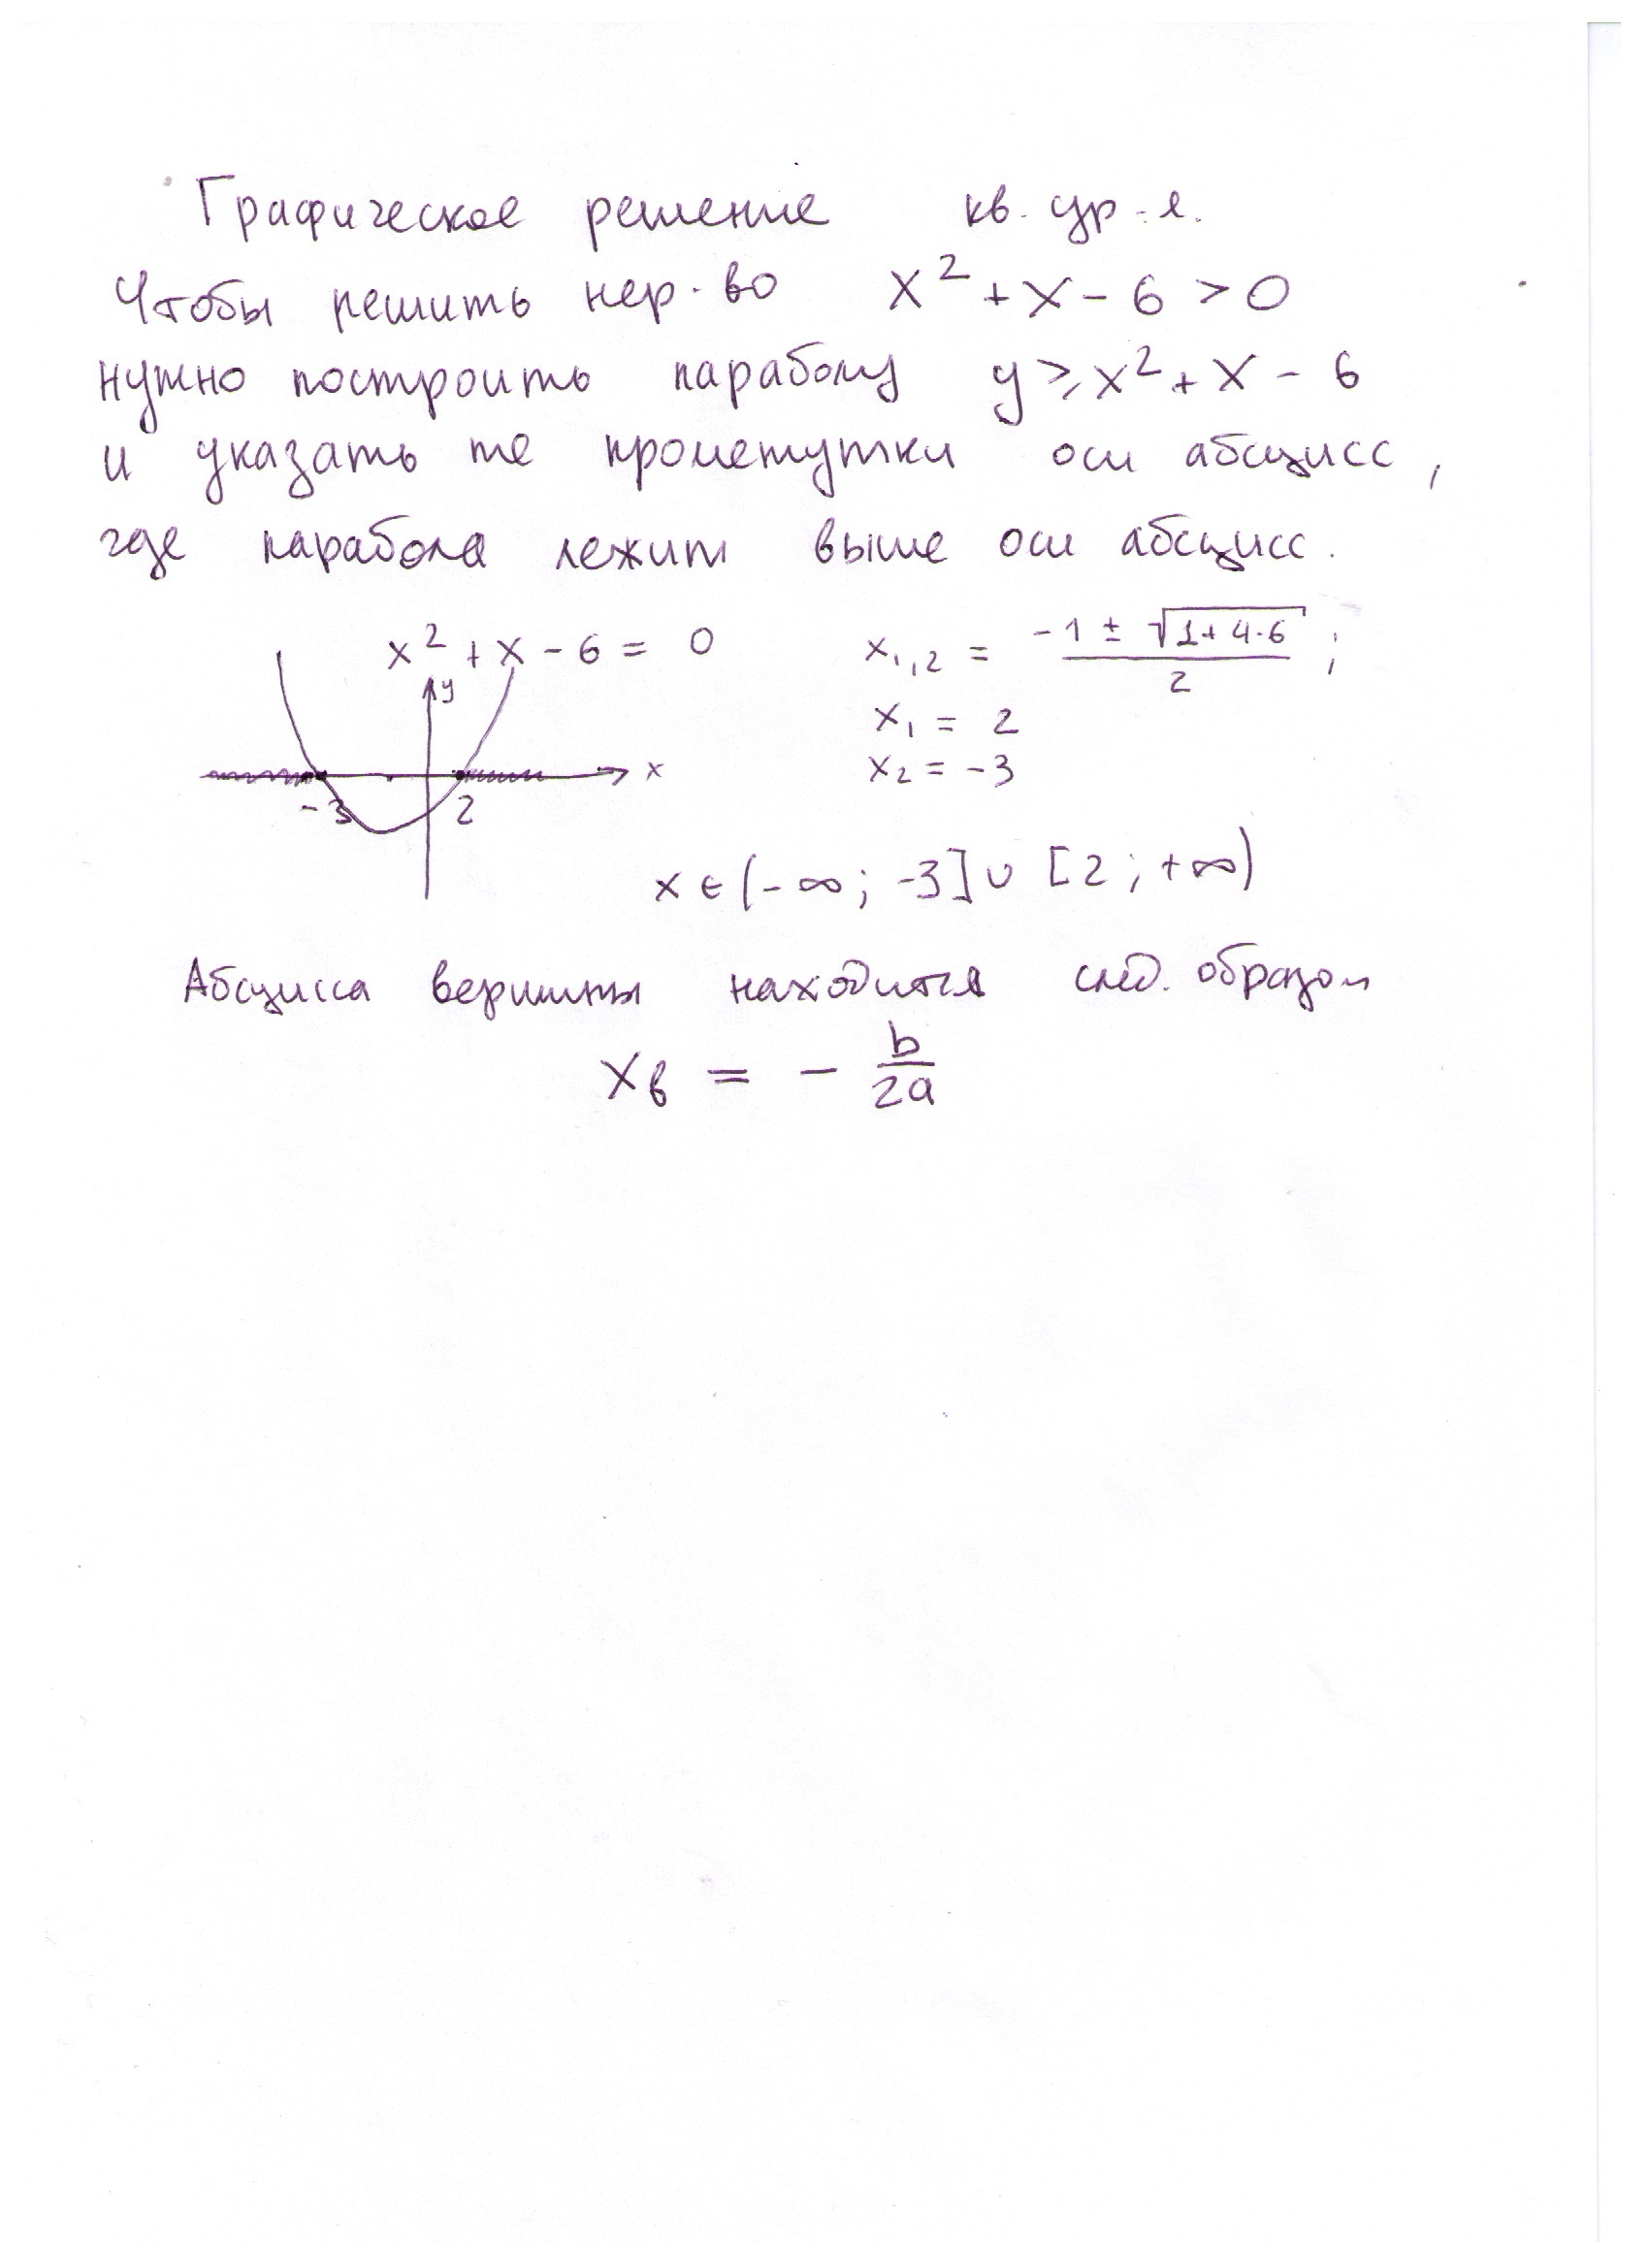 Графическое решение кв. ур-е.
Чтобы решить нер-во x² + x - 6 > 0
нужно построить параболу y ⩾ x² + x - 6
и указать те промежутки оси абсцисс,
где парабола лежит выше оси абсцисс.
x² + x - 6 = 0
x₁,₂ = (-1 ± √(1+4·6))/2 ;
y
x₁ = 2
x
x₂ = -3
-3 2
x ∈ (-∞; -3] ∪ [2; +∞)
Абсцисса вершины находится след. образом
xв = - b/2a